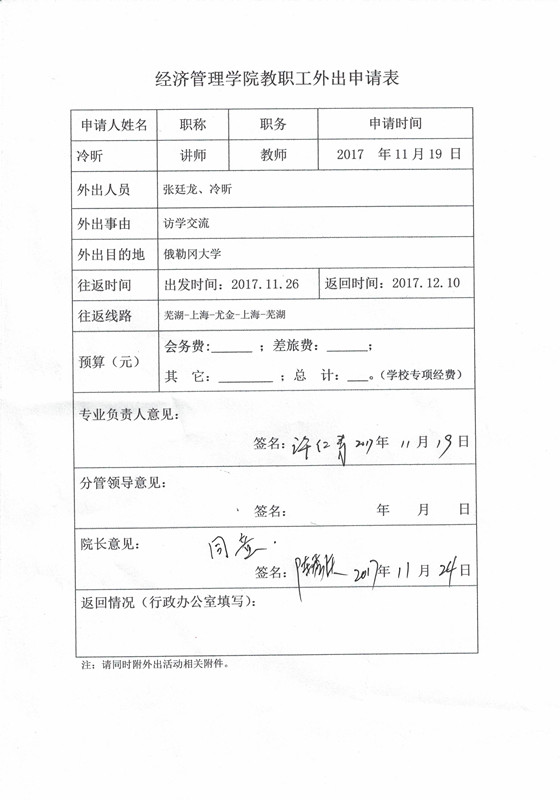 经济管理学院教职工外出申请表
申请人姓名 职称 职务 申请时间
冷昕 讲师 教师 2017 年 11 月 19 日
外出人员 张廷龙、冷昕
外出事由 访学交流
外出目的地 俄勒冈大学
往返时间 出发时间：2017.11.26 返回时间：2017.12.10
往返线路 芜湖-上海-尤金-上海-芜湖
预算（元） 会务费:______ ；差旅费：______；
其 它：________ ；总 计：___。（学校专项经费）
专业负责人意见：
签名：许仁青 2017年 11 月 19 日
分管领导意见：
签名： 年 月 日
院长意见： 同意.
签名： 2017年 11 月 24 日
返回情况（行政办公室填写）：
注：请同时附外出活动相关附件。